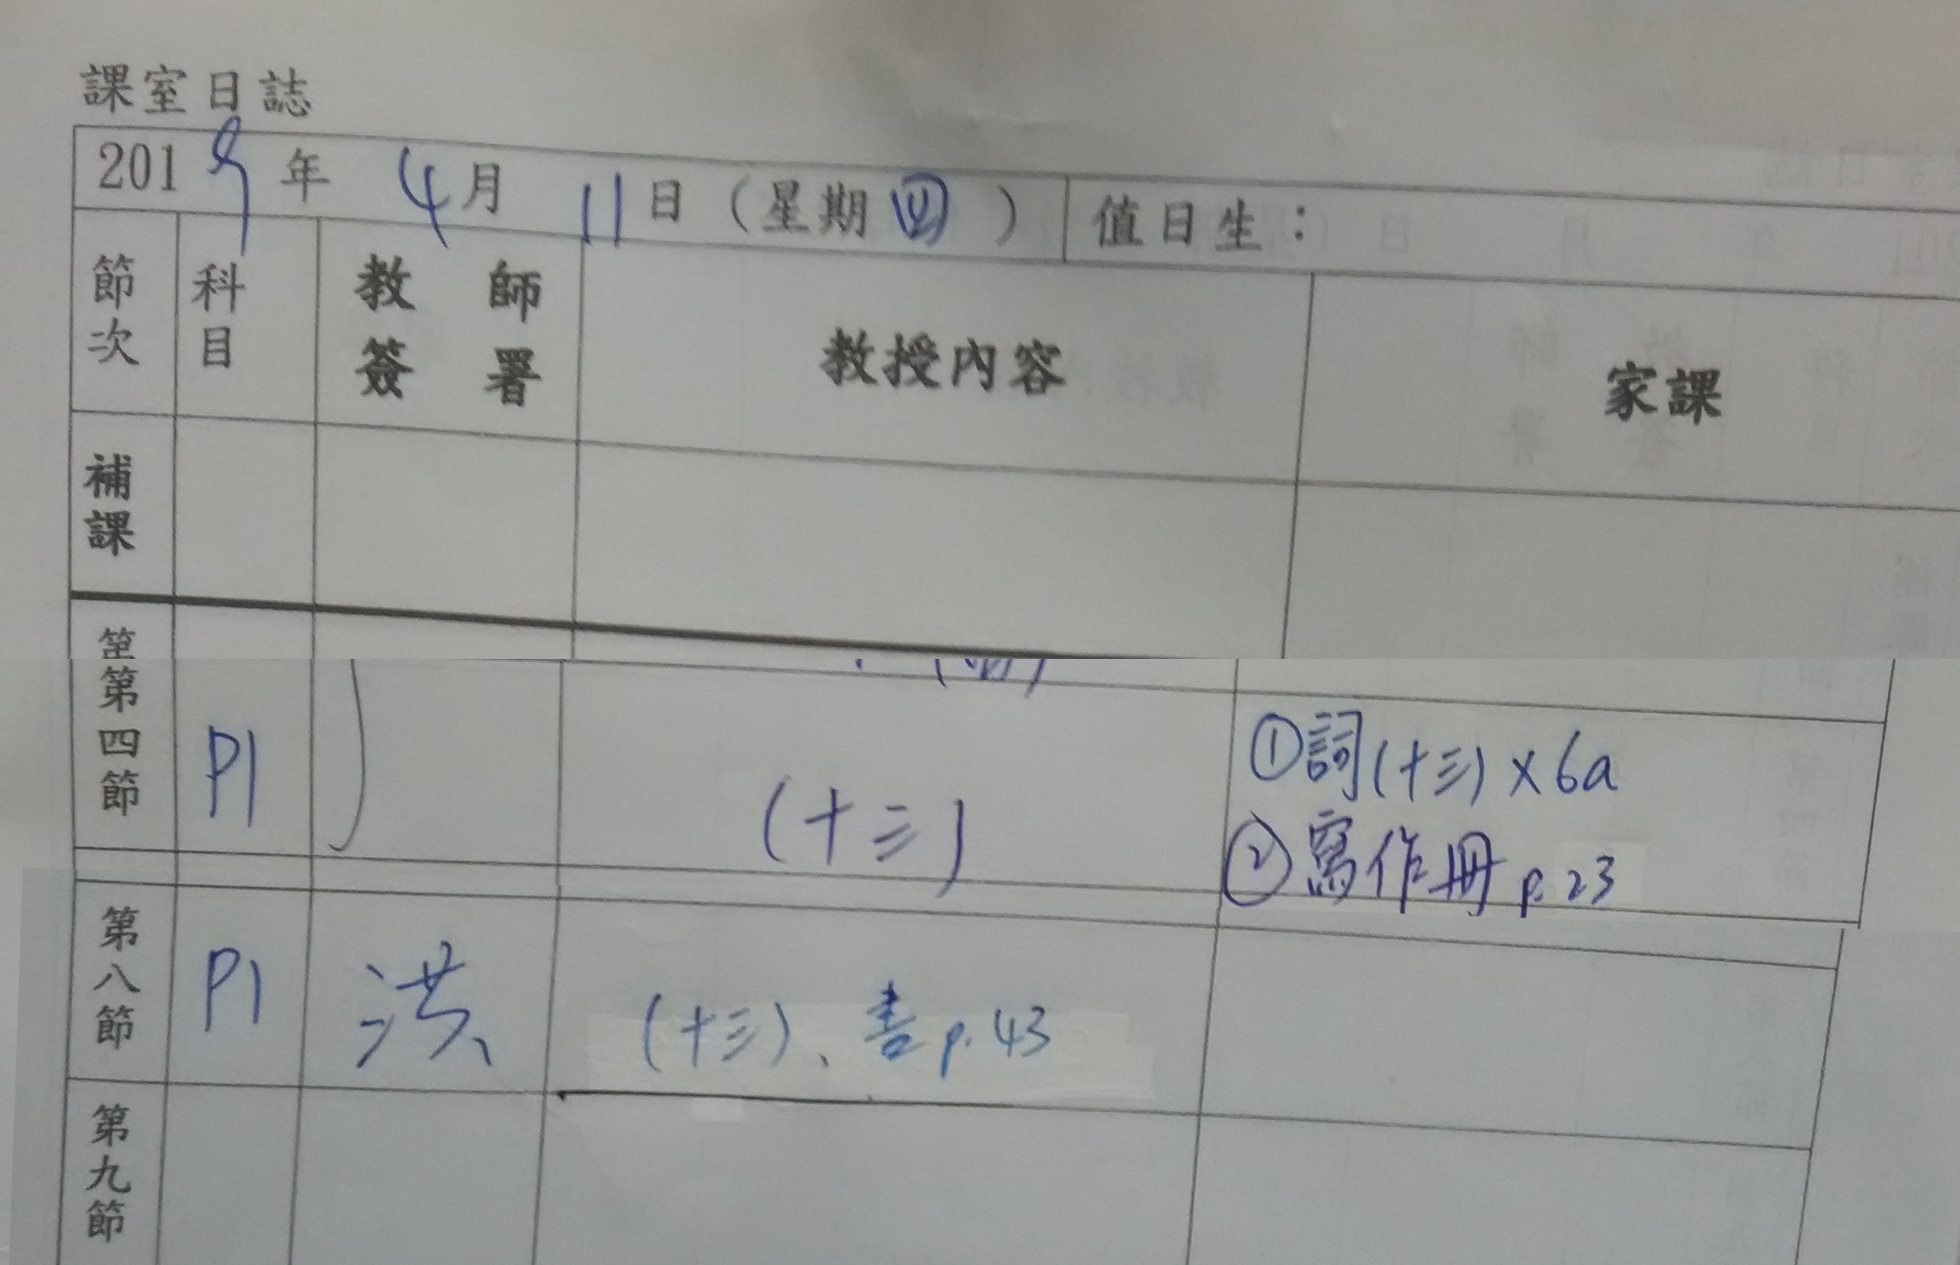 課室日誌
2019年 4月 11日（星期四） 值日生：
節次 科目 教師簽署 教授內容 家課
補課
第四節 P1 (十三) ①詞(十三)×6a
②寫作冊 p.23
第八節 P1 洪 (十三)、書 p.43
第九節